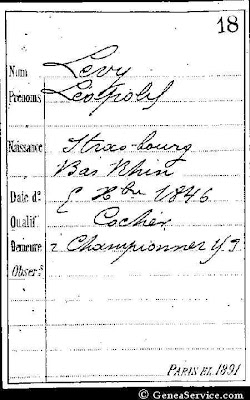 18
Nom Levy
Prénoms Léopold
Naissance Strasbourg
Bas Rhin
Date dº Xbre 1846
Qualif. Cocher
Demeure r Championnet
Observ.
PARIS EL. 1891
© GeneaService.com